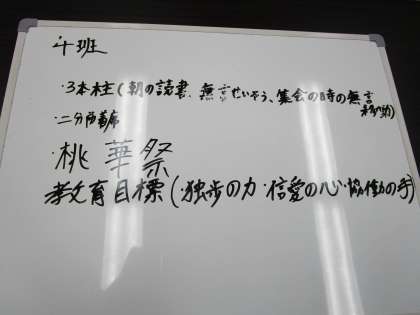 4班
・3本柱(朝の読書、無言せいそう、集会の時の無言移動)
・二分前着席
・桃華祭
教育目標(・独歩の力・信愛の心・協働の手)